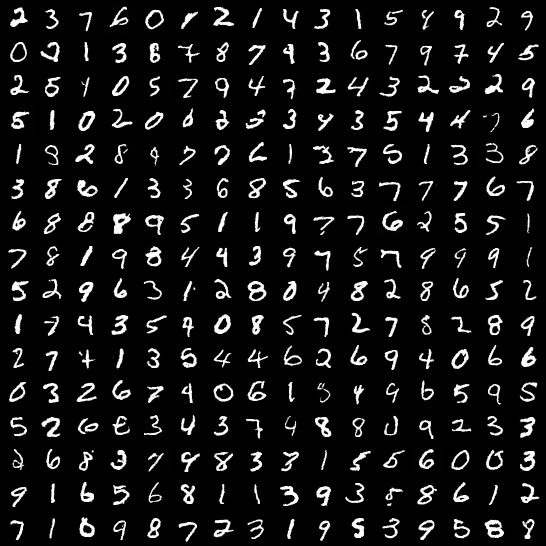 2 3 7 6 0 1 2 1 4 3 1 5 4 9 2 9
0 2 1 3 6 7 8 7 9 3 6 7 9 7 4 5
2 5 1 0 5 7 9 4 7 2 4 3 2 2 2 9
5 1 0 2 0 6 2 2 3 4 3 5 4 4 7 6
1 8 2 8 9 7 7 6 1 3 7 5 1 3 3 8
3 8 6 1 3 3 6 8 5 6 3 7 7 7 6 7
6 8 8 8 9 5 1 1 9 7 7 6 2 5 5 1
7 8 1 9 8 4 4 3 9 7 5 7 9 9 9 1
5 2 9 6 3 1 2 8 0 4 8 2 8 6 5 2
1 7 4 3 5 9 0 8 5 7 2 7 8 2 8 9
2 7 7 1 3 5 4 4 6 2 6 9 4 0 6 6
0 3 2 6 7 9 0 6 1 8 4 9 6 5 9 5
5 2 6 8 3 4 3 7 9 8 8 0 9 2 3 3
2 6 8 3 7 9 8 3 3 1 5 5 6 0 0 3
9 1 6 5 6 8 1 1 3 9 3 5 8 6 1 2
7 1 0 9 8 7 2 3 1 9 5 3 9 5 8 8